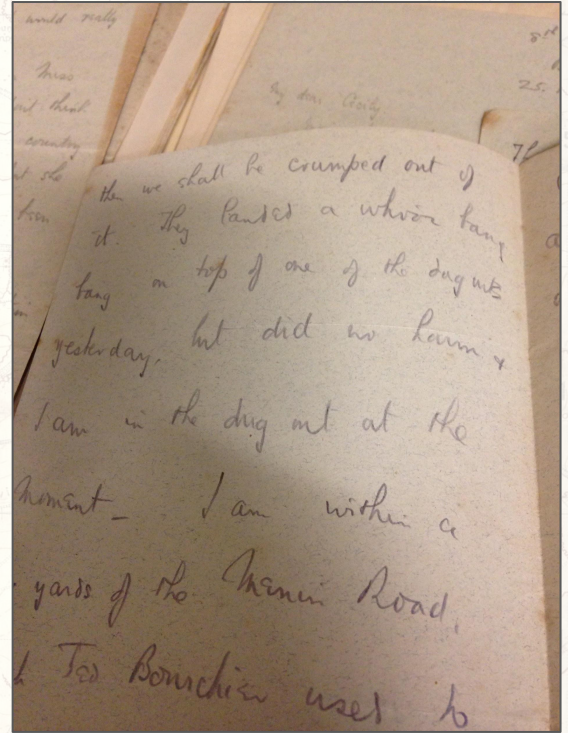 would really
Miss
think
country
she
been
8th
25.
My dear
then we shall be crumped out of
it. They landed a whizz bang
bang on top of one of the dug outs
yesterday, but did no harm &
I am in the dug out at the
moment _ I am within a
yards of the Menin Road,
Ted Bourchier used to